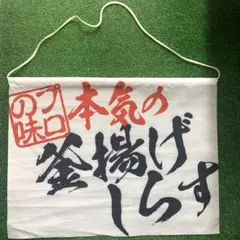 プロの味
本気の
釜揚げ
しらす